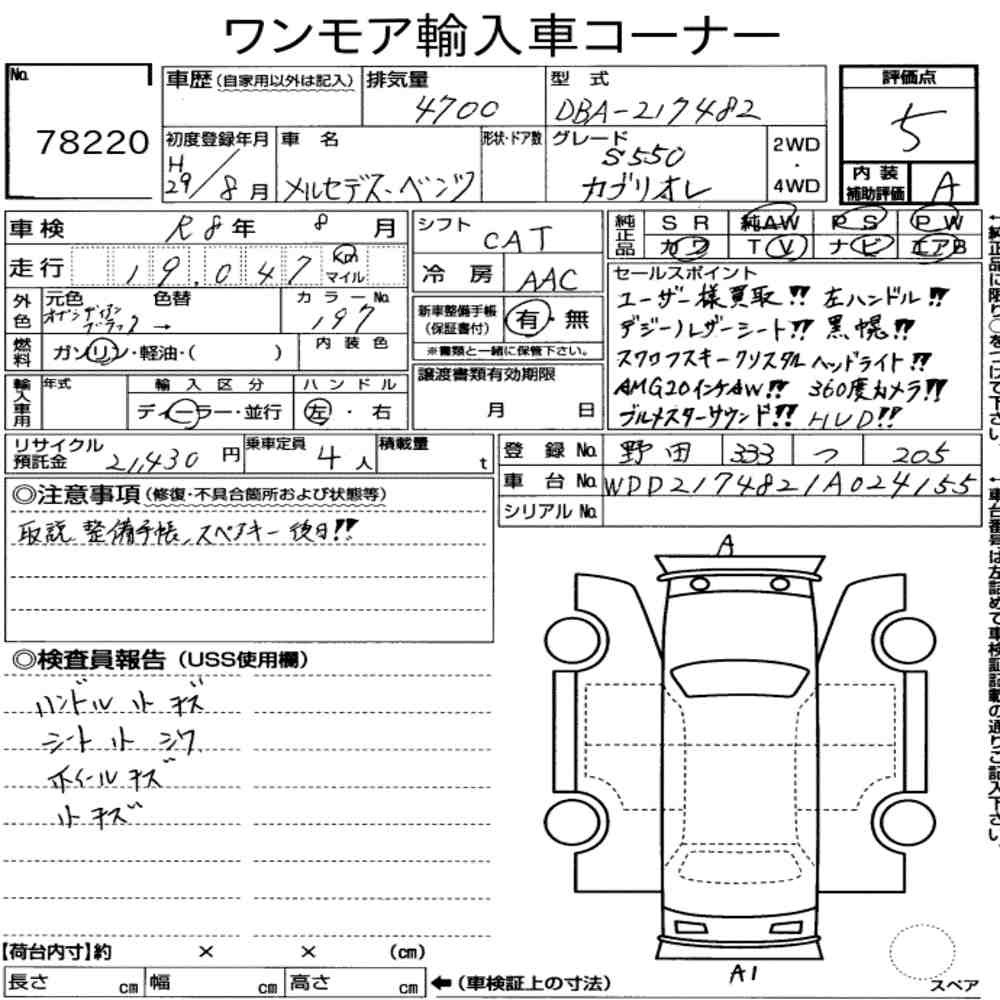 ワンモア輸入車コーナー
No. 78220
車歴(自家用以外は記入) 排気量 4700 型式 DBA-217482
評価点 5
初度登録年月 H29/8月 車名 メルセデス・ベンツ 形状・ドア数 グレード S550 カブリオレ 2WD・4WD
内装補助評価 A
車検 R8年 8月 シフト CAT
純正品 SR 純AW PS PW
カワ TV ナビ エアB
走行 19,047 Km マイル 冷房 AAC
外色 元色 オブシディアンブラック → 色替 カラーNo. 197
新車整備手帳(保証書付) 有・無
※書類と一緒に保管下さい。
燃料 ガソリン・軽油・( ) 内装色
セールスポイント
ユーザー様買取!! 左ハンドル!!
デジーノレザーシート!! 黒幌!!
スワロフスキークリスタルヘッドライト!!
AMG20インチAW!! 360度カメラ!!
ブルメスターサウンド!! HUD!!
輸入車用 年式 輸入区分 ディーラー・並行 ハンドル 左・右
譲渡書類有効期限 月 日
リサイクル預託金 21,430円 乗車定員 4人 積載量 t
登録No. 野田 333 つ 205
車台No. WDD2174821A024155
シリアルNo.
◎注意事項(修復・不具合箇所および状態等)
取説、整備手帳、スペアキー後日!!
◎検査員報告(USS使用欄)
ハンドル小キズ
シート小シワ
ホイールキズ
小キズ
A
A1
【荷台内寸】約 × × (cm)
長さ cm 幅 cm 高さ cm ←(車検証上の寸法)
スペア
←純正品に限り○をつけて下さい。
←車台番号は左詰めで車検証記載の通りご記入下さい。